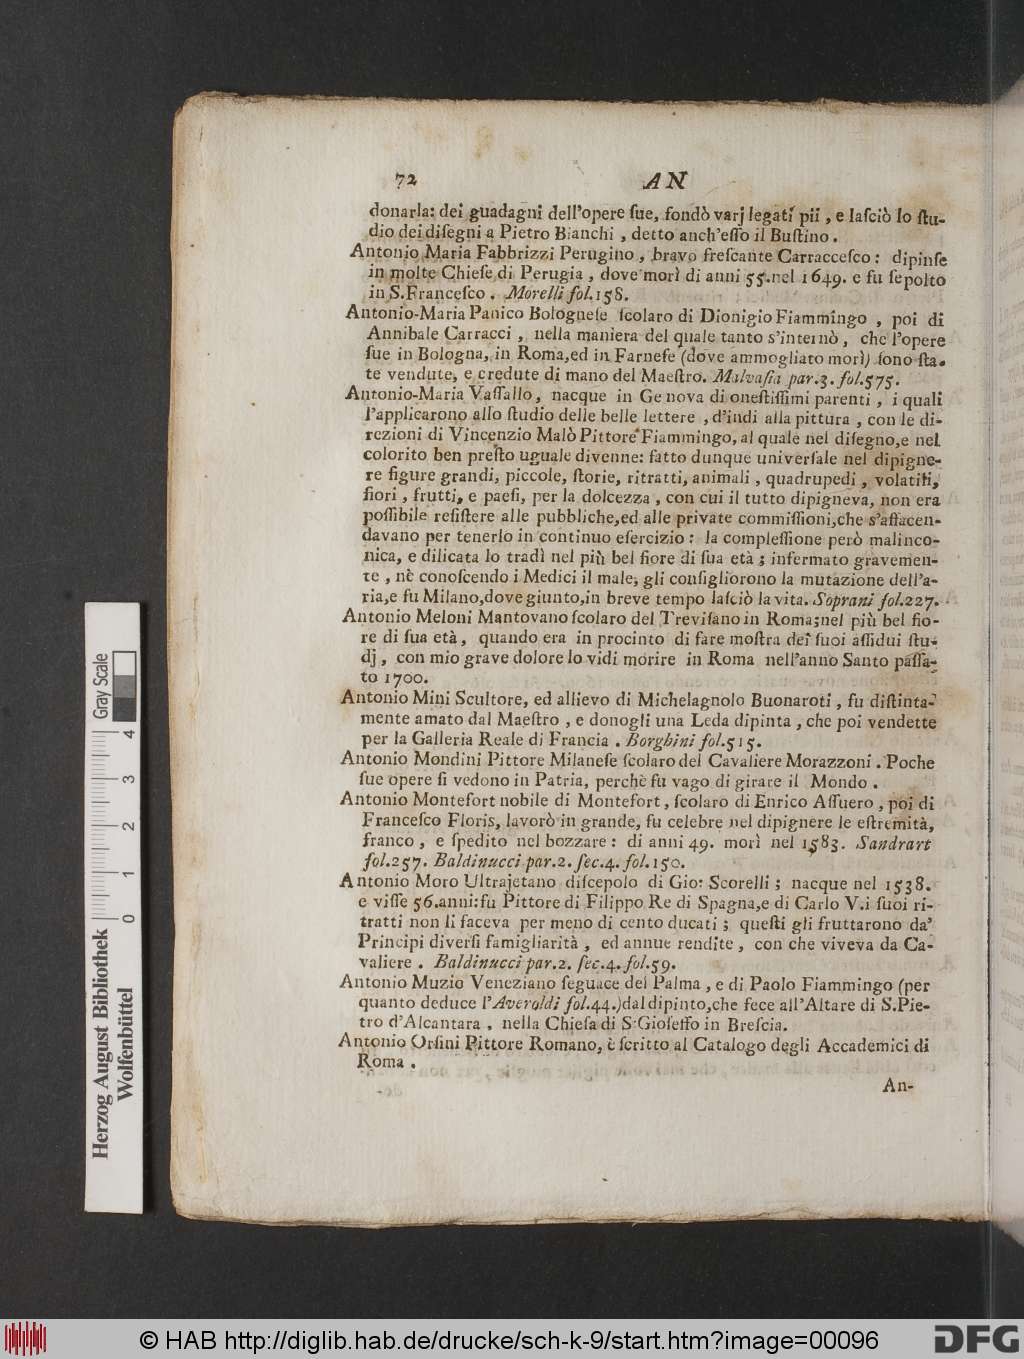 72 AN
donarla: dei guadagni dell'opere sue, fondò varj legati pii, e lasciò lo stu-
dio dei disegni a Pietro Bianchi, detto anch'esso il Bustino.
Antonio Maria Fabbrizzi Perugino, bravo frescante Carraccesco: dipinse
in molte Chiese di Perugia, dove morì di anni 55. nel 1649. e fu sepolto
in S. Francesco. Morelli fol. 158.
Antonio-Maria Panico Bolognese scolaro di Dionigio Fiammingo, poi di
Annibale Carracci, nella maniera del quale tanto s'internò, che l'opere
sue in Bologna, in Roma, ed in Farnese (dove ammogliato morì) sono sta-
te vendute, e credute di mano del Maestro. Malvasia par. 3. fol. 575.
Antonio-Maria Vassallo, nacque in Genova di onestissimi parenti, i quali
l'applicarono allo studio delle belle lettere, d'indi alla pittura, con le di-
rezioni di Vincenzio Malò Pittore Fiammingo, al quale nel disegno, e nel
colorito ben presto uguale divenne: fatto dunque universale nel dipigne-
re figure grandi, piccole, storie, ritratti, animali, quadrupedi, volatili,
fiori, frutti, e paesi, per la dolcezza, con cui il tutto dipigneva, non era
possibile resistere alle pubbliche, ed alle private commissioni, che s'affacen-
davano per tenerlo in continuo esercizio: la complessione però malinco-
nica, e dilicata lo tradì nel più bel fiore di sua età; infermato gravemen-
te, nè conoscendo i Medici il male, gli consigliorono la mutazione dell'a-
ria, e fu Milano, dove giunto, in breve tempo lasciò la vita. Soprani fol. 227.
Antonio Meloni Mantovano scolaro del Trevisano in Roma; nel più bel fio-
re di sua età, quando era in procinto di fare mostra dei suoi assidui stu-
dj, con mio grave dolore lo vidi morire in Roma nell'anno Santo passa-
to 1700.
Antonio Mini Scultore, ed allievo di Michelagnolo Buonaroti, fu distinta-
mente amato dal Maestro, e donogli una Leda dipinta, che poi vendette
per la Galleria Reale di Francia. Borghini fol. 515.
Antonio Mondini Pittore Milanese scolaro del Cavaliere Morazzoni. Poche
sue opere si vedono in Patria, perchè fu vago di girare il Mondo.
Antonio Montefort nobile di Montefort, scolaro di Enrico Assuero, poi di
Francesco Floris, lavorò in grande, fu celebre nel dipignere le estremità,
franco, e spedito nel bozzare: di anni 49. morì nel 1583. Sandrart
fol. 257. Baldinucci par. 2. sec. 4. fol. 150.
Antonio Moro Ultrajetano discepolo di Gio: Scorelli; nacque nel 1538.
e visse 56. anni: fu Pittore di Filippo Re di Spagna, e di Carlo V. i suoi ri-
tratti non li faceva per meno di cento ducati; questi gli fruttarono da'
Principi diversi famigliarità, ed annue rendite, con che viveva da Ca-
valiere. Baldinucci par. 2. sec. 4. fol. 59.
Antonio Muzio Veneziano seguace del Palma, e di Paolo Fiammingo (per
quanto deduce l'Averoldi fol. 44.) dal dipinto, che fece all'Altare di S. Pie-
tro d'Alcantara, nella Chiesa di S. Gioseffo in Brescia.
Antonio Orsini Pittore Romano, è scritto al Catalogo degli Accademici di
Roma.
An-
Gray Scale
0 1 2 3 4
Herzog August Bibliothek
Wolfenbüttel
© HAB http://diglib.hab.de/drucke/sch-k-9/start.htm?image=00096
DFG